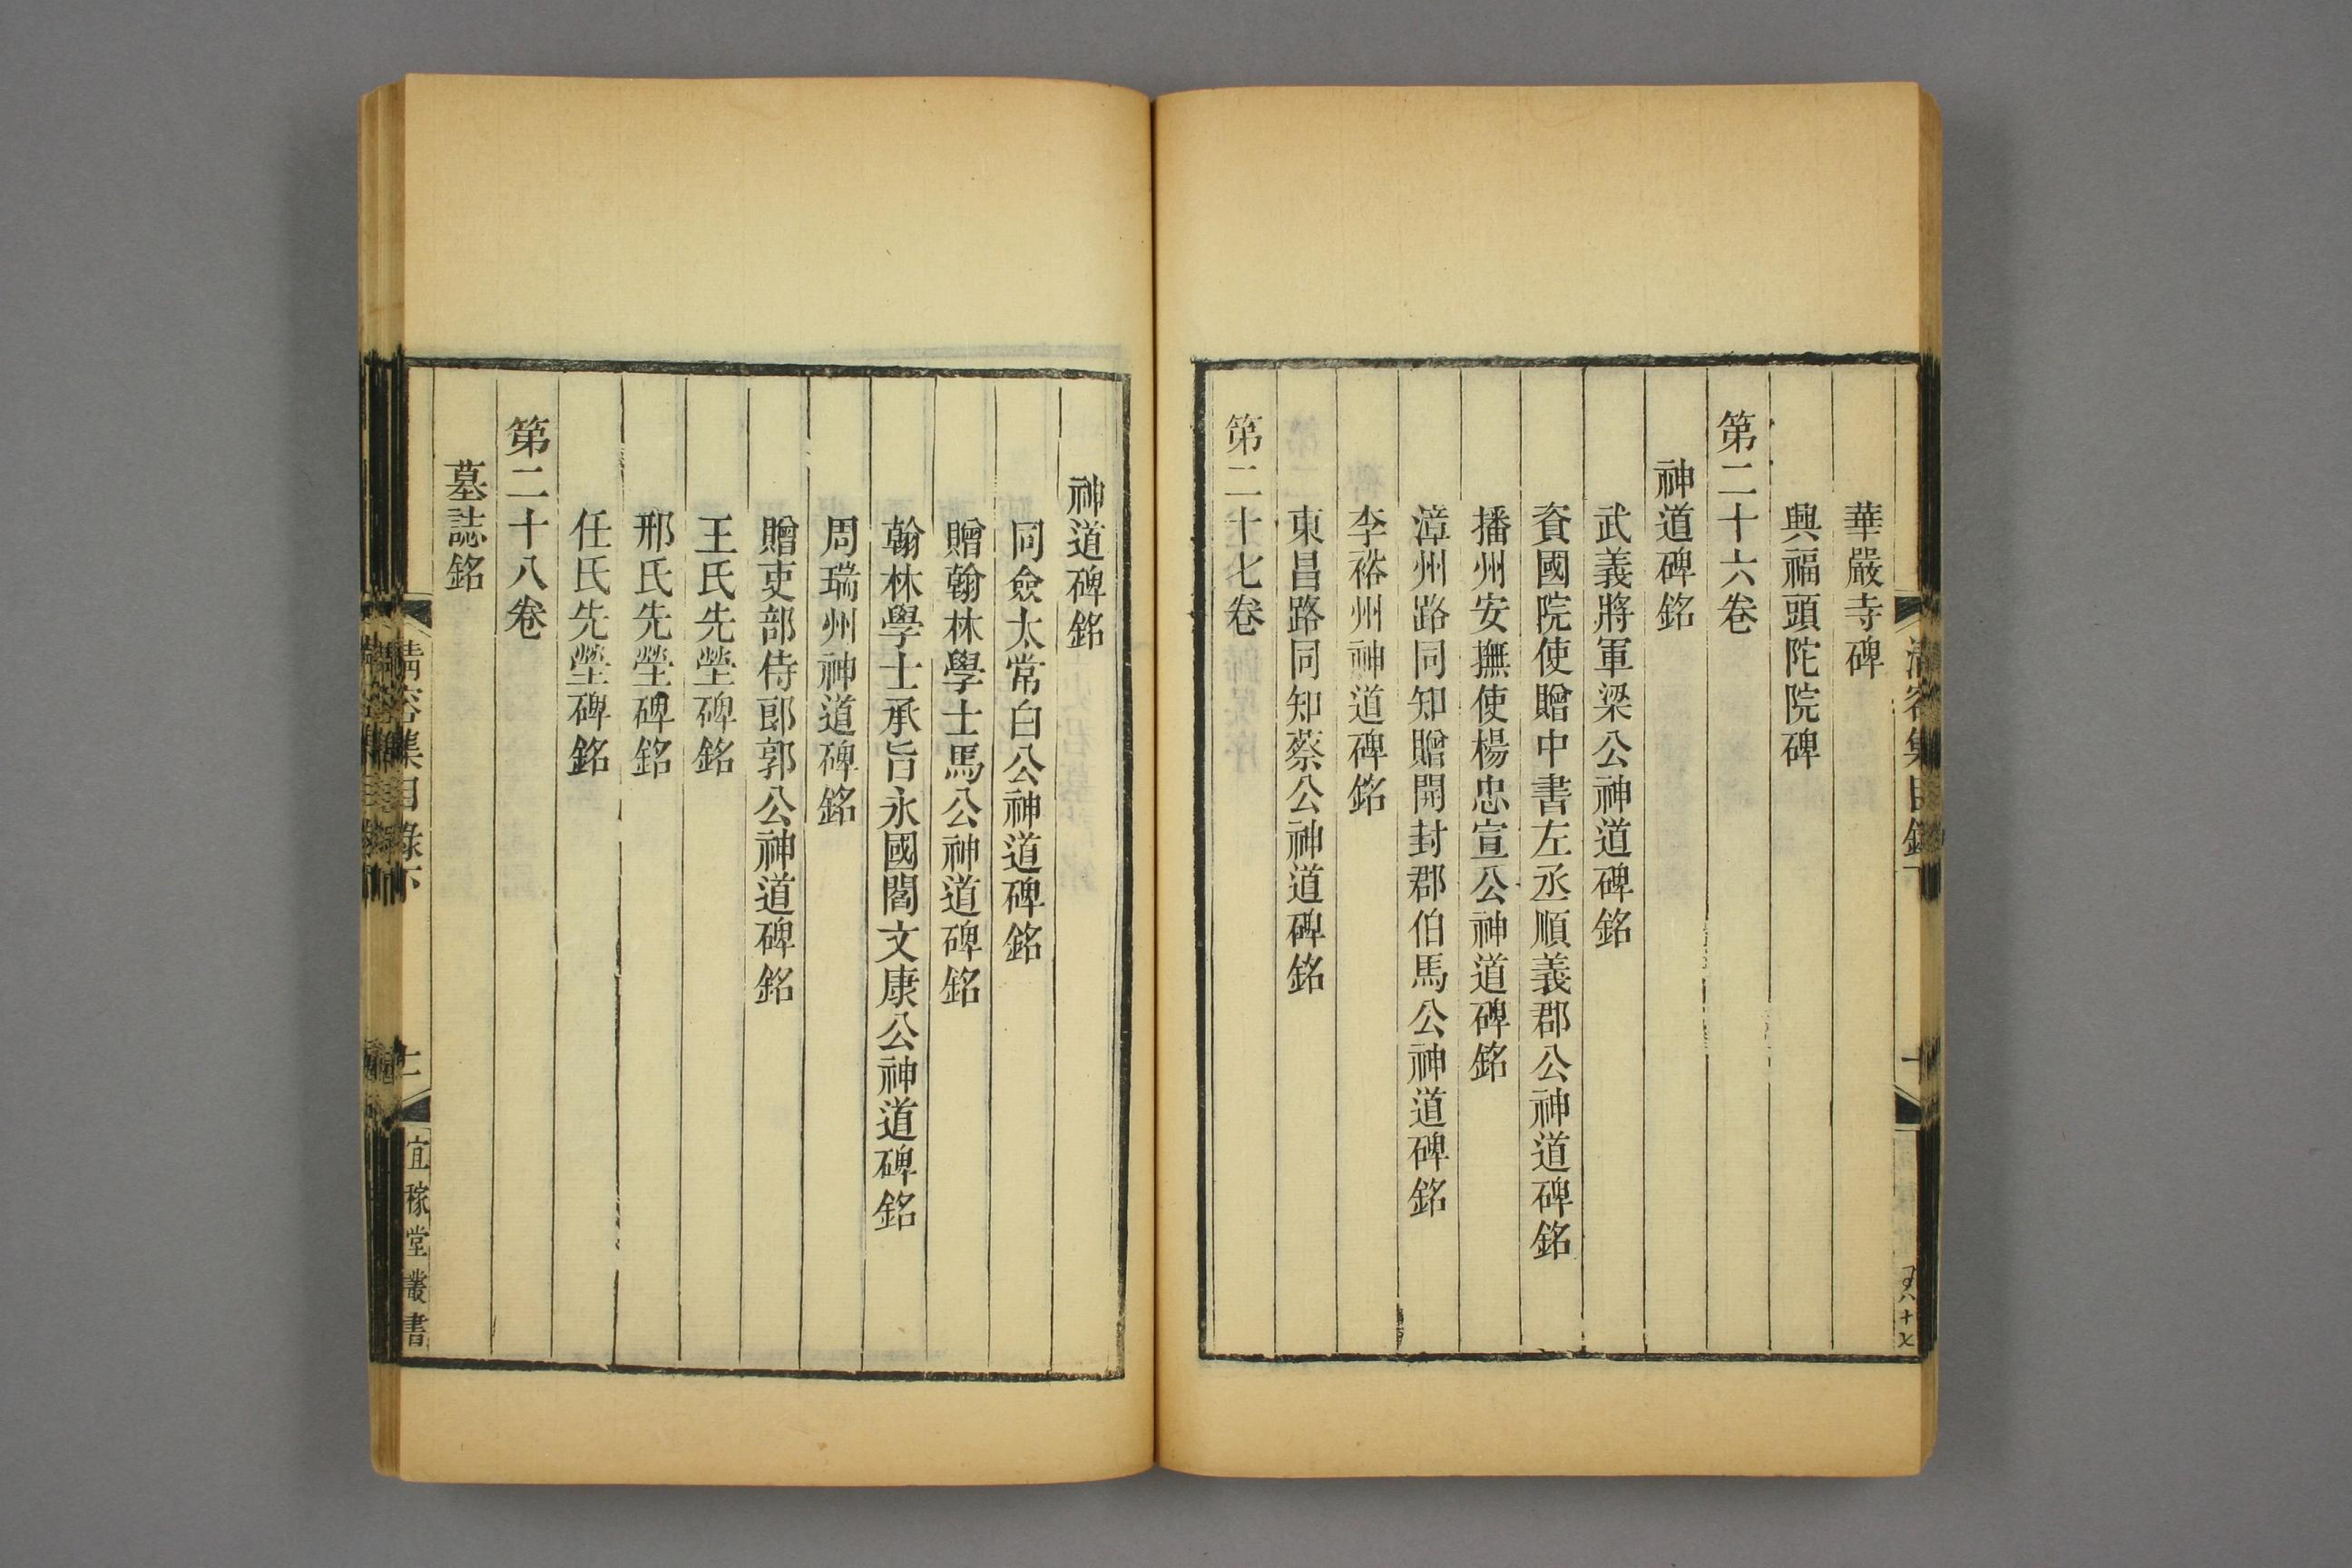 華嚴寺碑
興福頭陀院碑
第二十六卷
神道碑銘
武義將軍梁公神道碑銘
資國院使贈中書左丞順義郡公神道碑銘
播州安撫使楊忠宣公神道碑銘
漳州路同知贈開封郡伯馬公神道碑銘
李裕州神道碑銘
東昌路同知蔡公神道碑銘
第二十七卷
神道碑銘
同僉太常白公神道碑銘
贈翰林學士馬公神道碑銘
翰林學士承旨永國閻文康公神道碑銘
周瑞州神道碑銘
贈吏部侍郎郭公神道碑銘
王氏先塋碑銘
邢氏先塋碑銘
任氏先塋碑銘
第二十八卷
墓誌銘
清容集目錄下
宜稼堂叢書